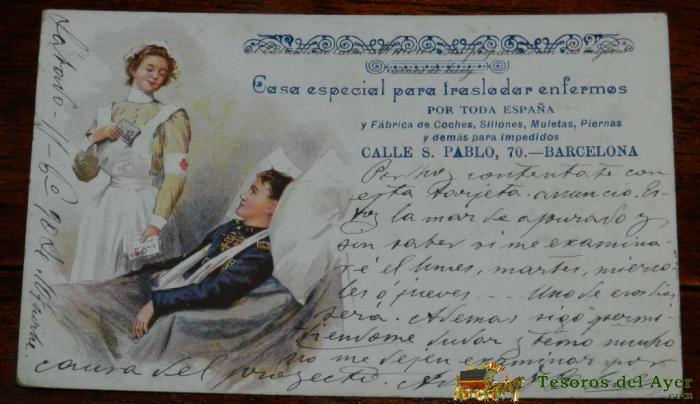 Casa especial para trasladar enfermos
POR TODA ESPAÑA
y Fábrica de Coches, Sillones, Muletas, Piernas
y demás para impedidos
CALLE S. PABLO, 70.—BARCELONA
Por hoy contentate con
esta tarjeta-anuncio. Es-
toy la mar de apurado y
sin saber si me examina-
ré el lunes, martes, mierco-
les ó jueves.... Uno de esos dias
será. Ademas sigo
dudar y temo mucho
no me dejen examinar por
causa del proyecto.
Sábado-11-6º 904.
Tesoros del Ayer
.com